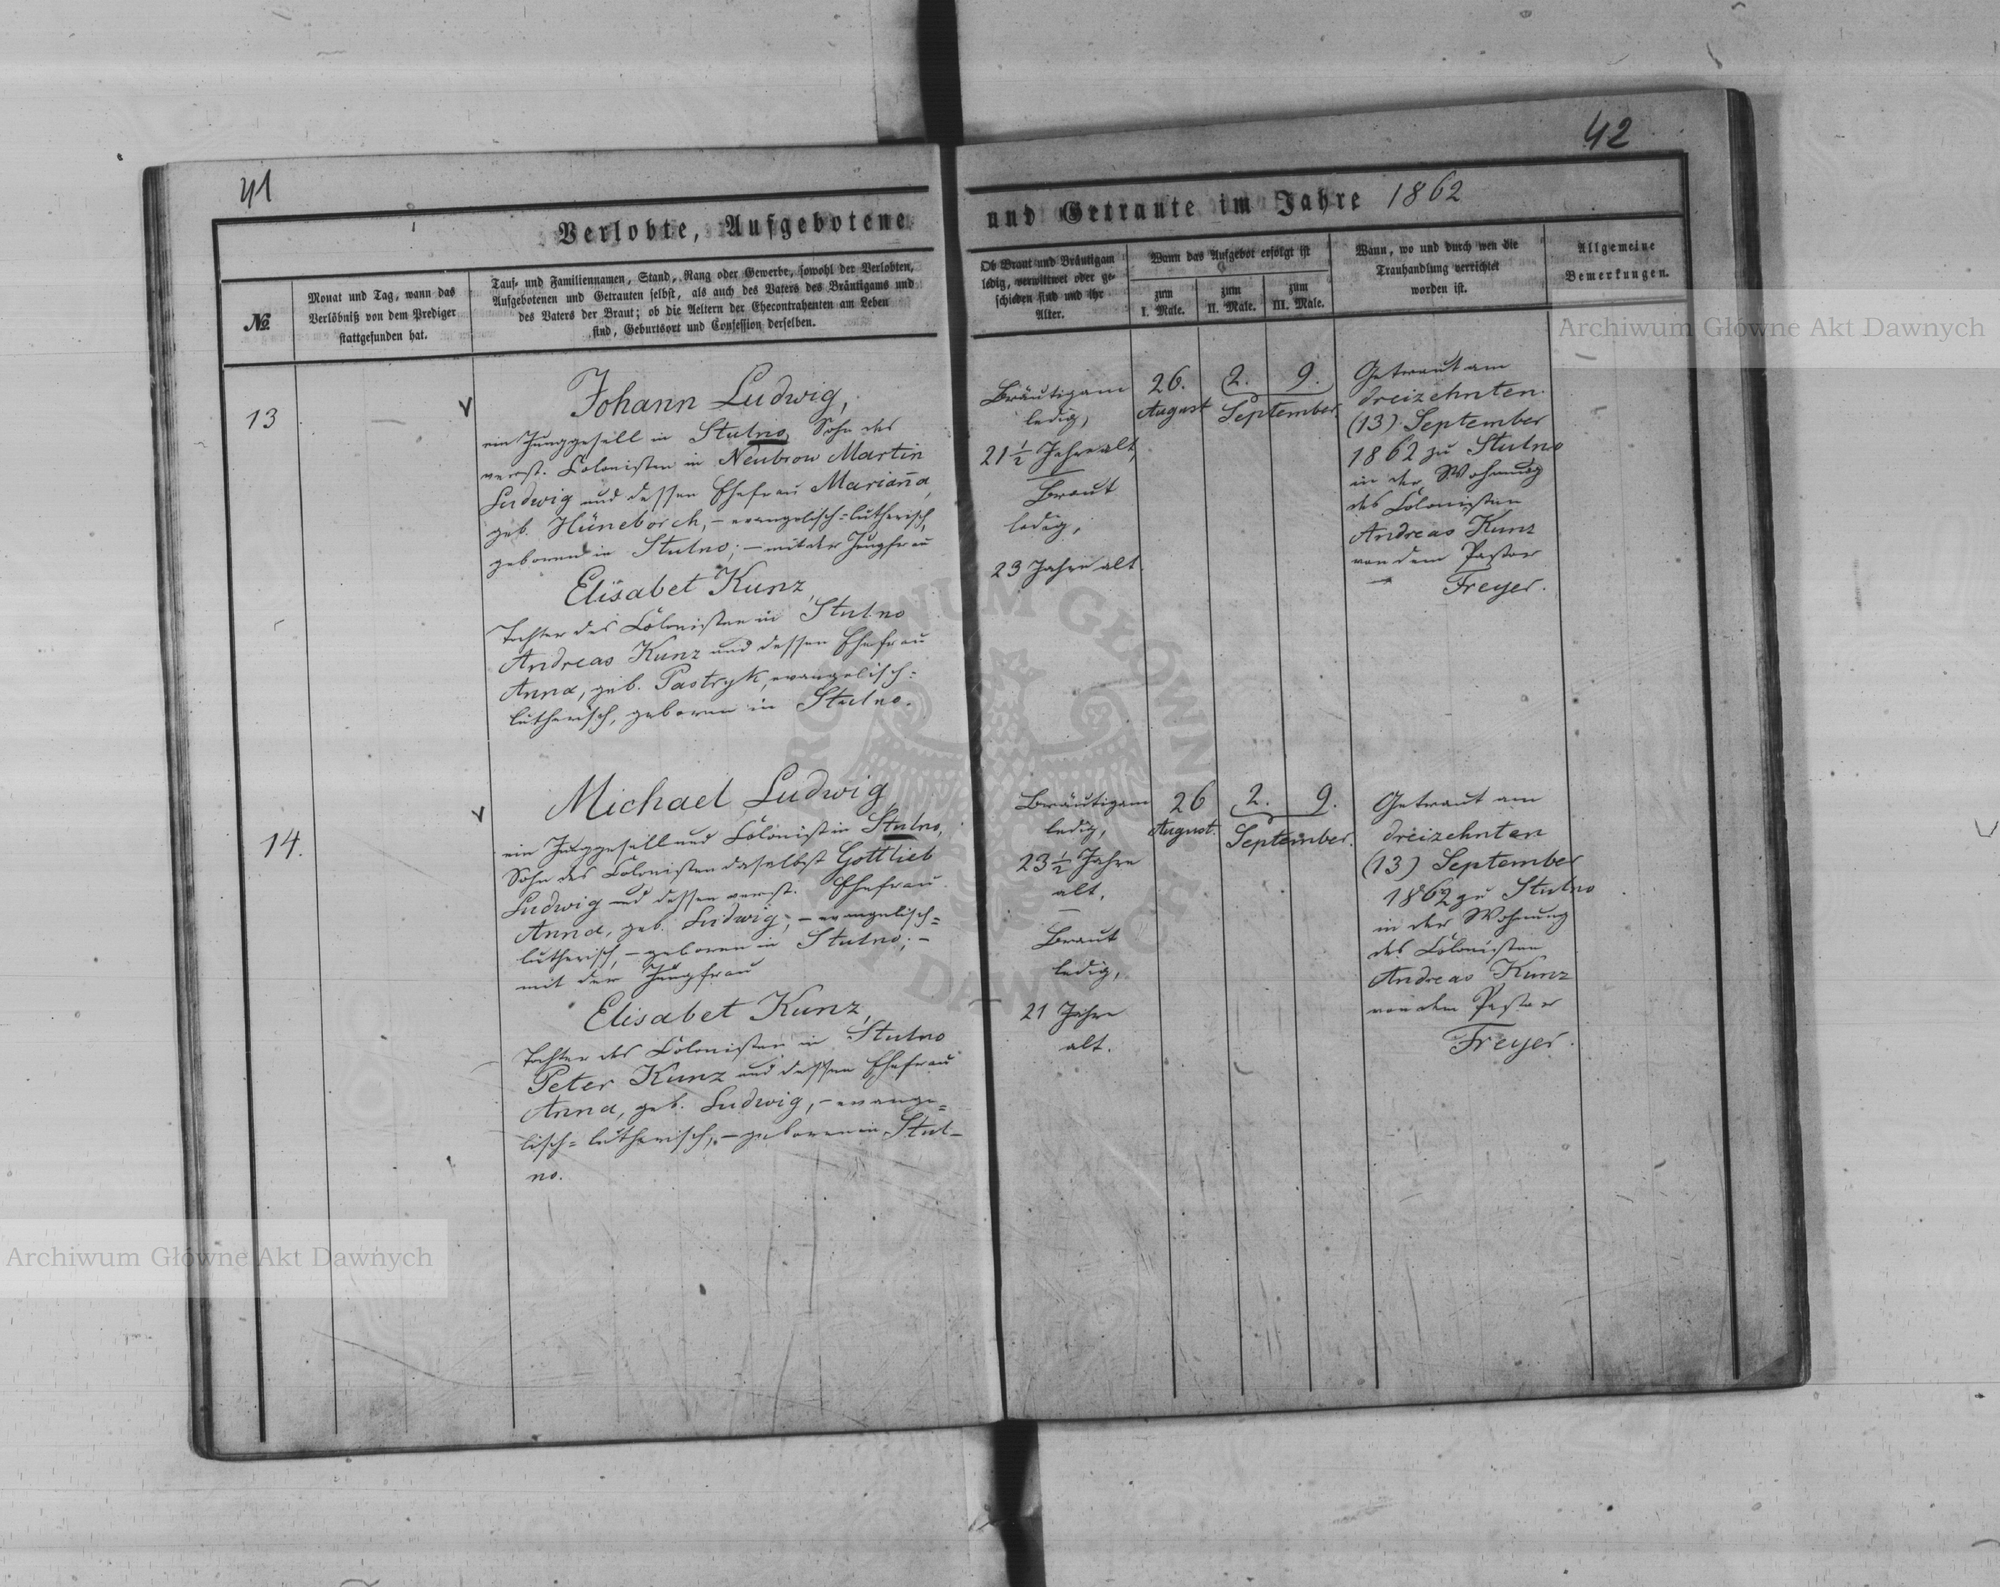 41
Verlobte, Aufgebotene
№
Monat und Tag, wann das
Verlöbniß von dem Prediger
stattgefunden hat.
Tauf- und Familiennamen, Stand, Rang oder Gewerbe, sowohl der Verlobten,
Aufgebotenen und Getrauten selbst, als auch des Vaters des Bräutigams und
des Vaters der Braut; ob die Aeltern der Ehecontrahenten am Leben
sind, Geburtsort und Confession derselben.
13
Johann Ludwig,
ein Junggesell in Stulno, Sohn des
verst. Colonisten in Neubrow Martin
Ludwig und dessen Ehefrau Marian̄a,
geb. Hüneborch, – evangelisch-lutherisch,
geboren in Stulno; – mit der Jungfrau
Elisabet Kunz,
Tochter des Colonisten in Stulno
Andreas Kunz und dessen Ehefrau
Anna, geb. Pastryk, evangelisch-
lutherisch, geboren in Stulno.
14.
Michael Ludwig
ein Junggesell und Colonist in Stulno,
Sohn des Colonisten daselbst Gottlieb
Ludwig und dessen verst. Ehefrau
Anna, geb. Ludwig; – evangelisch-
lutherisch, – geboren in Stulno; –
mit der Jungfrau
Elisabet Kunz,
Tochter des Colonisten in Stulno
Peter Kunz und dessen Ehefrau
Anna, geb. Ludwig, – evange-
lisch-lutherisch, – geboren in Stul-
no.
42
und Getraute im Jahre 1862
Ob Braut und Bräutigam
ledig, verwittwet oder ge-
schieden sind und ihr
Alter.
Wann das Aufgebot erfolgt ist
zum
I. Male.
zum
II. Male.
zum
III. Male.
Wann, wo und durch wen die
Trauhandlung verrichtet
worden ist.
Allgemeine
Bemerkungen.
Bräutigam
ledig,
21 ½ Jahre alt,
Braut
ledig,
23 Jahre alt.
26.
August
2. 9.
September
Getraut am
dreizehnten
(13) September
1862 zu Stulno
in der Wohnung
des Colonisten
Andreas Kunz
von dem Pastor
Freyer.
Bräutigam
ledig,
23 ½ Jahre
alt.
Braut
ledig,
21 Jahre
alt.
26
August.
2. 9.
September.
Getraut am
dreizehnten
(13) September
1862 zu Stulno
in der Wohnung
des Colonisten
Andreas Kunz
von dem Pastor
Freyer.
Archiwum Główne Akt Dawnych
Archiwum Główne Akt Dawnych